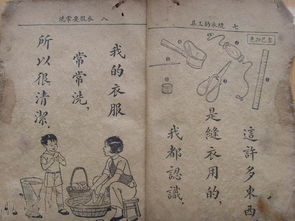 七 縫衣的工具
這許多東西
是縫衣用的,
我都認識.
八 衣服要常洗
我的衣服
常常洗,
所以很清潔.